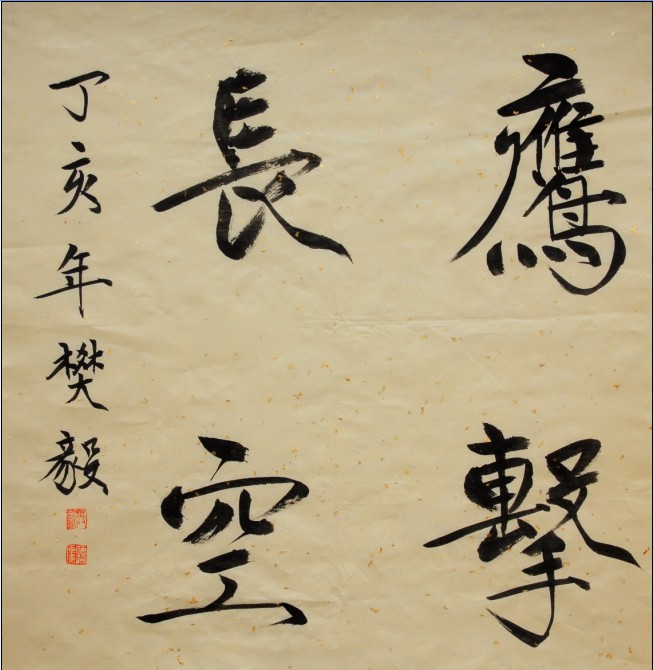 鷹擊
長空
丁亥年樊毅